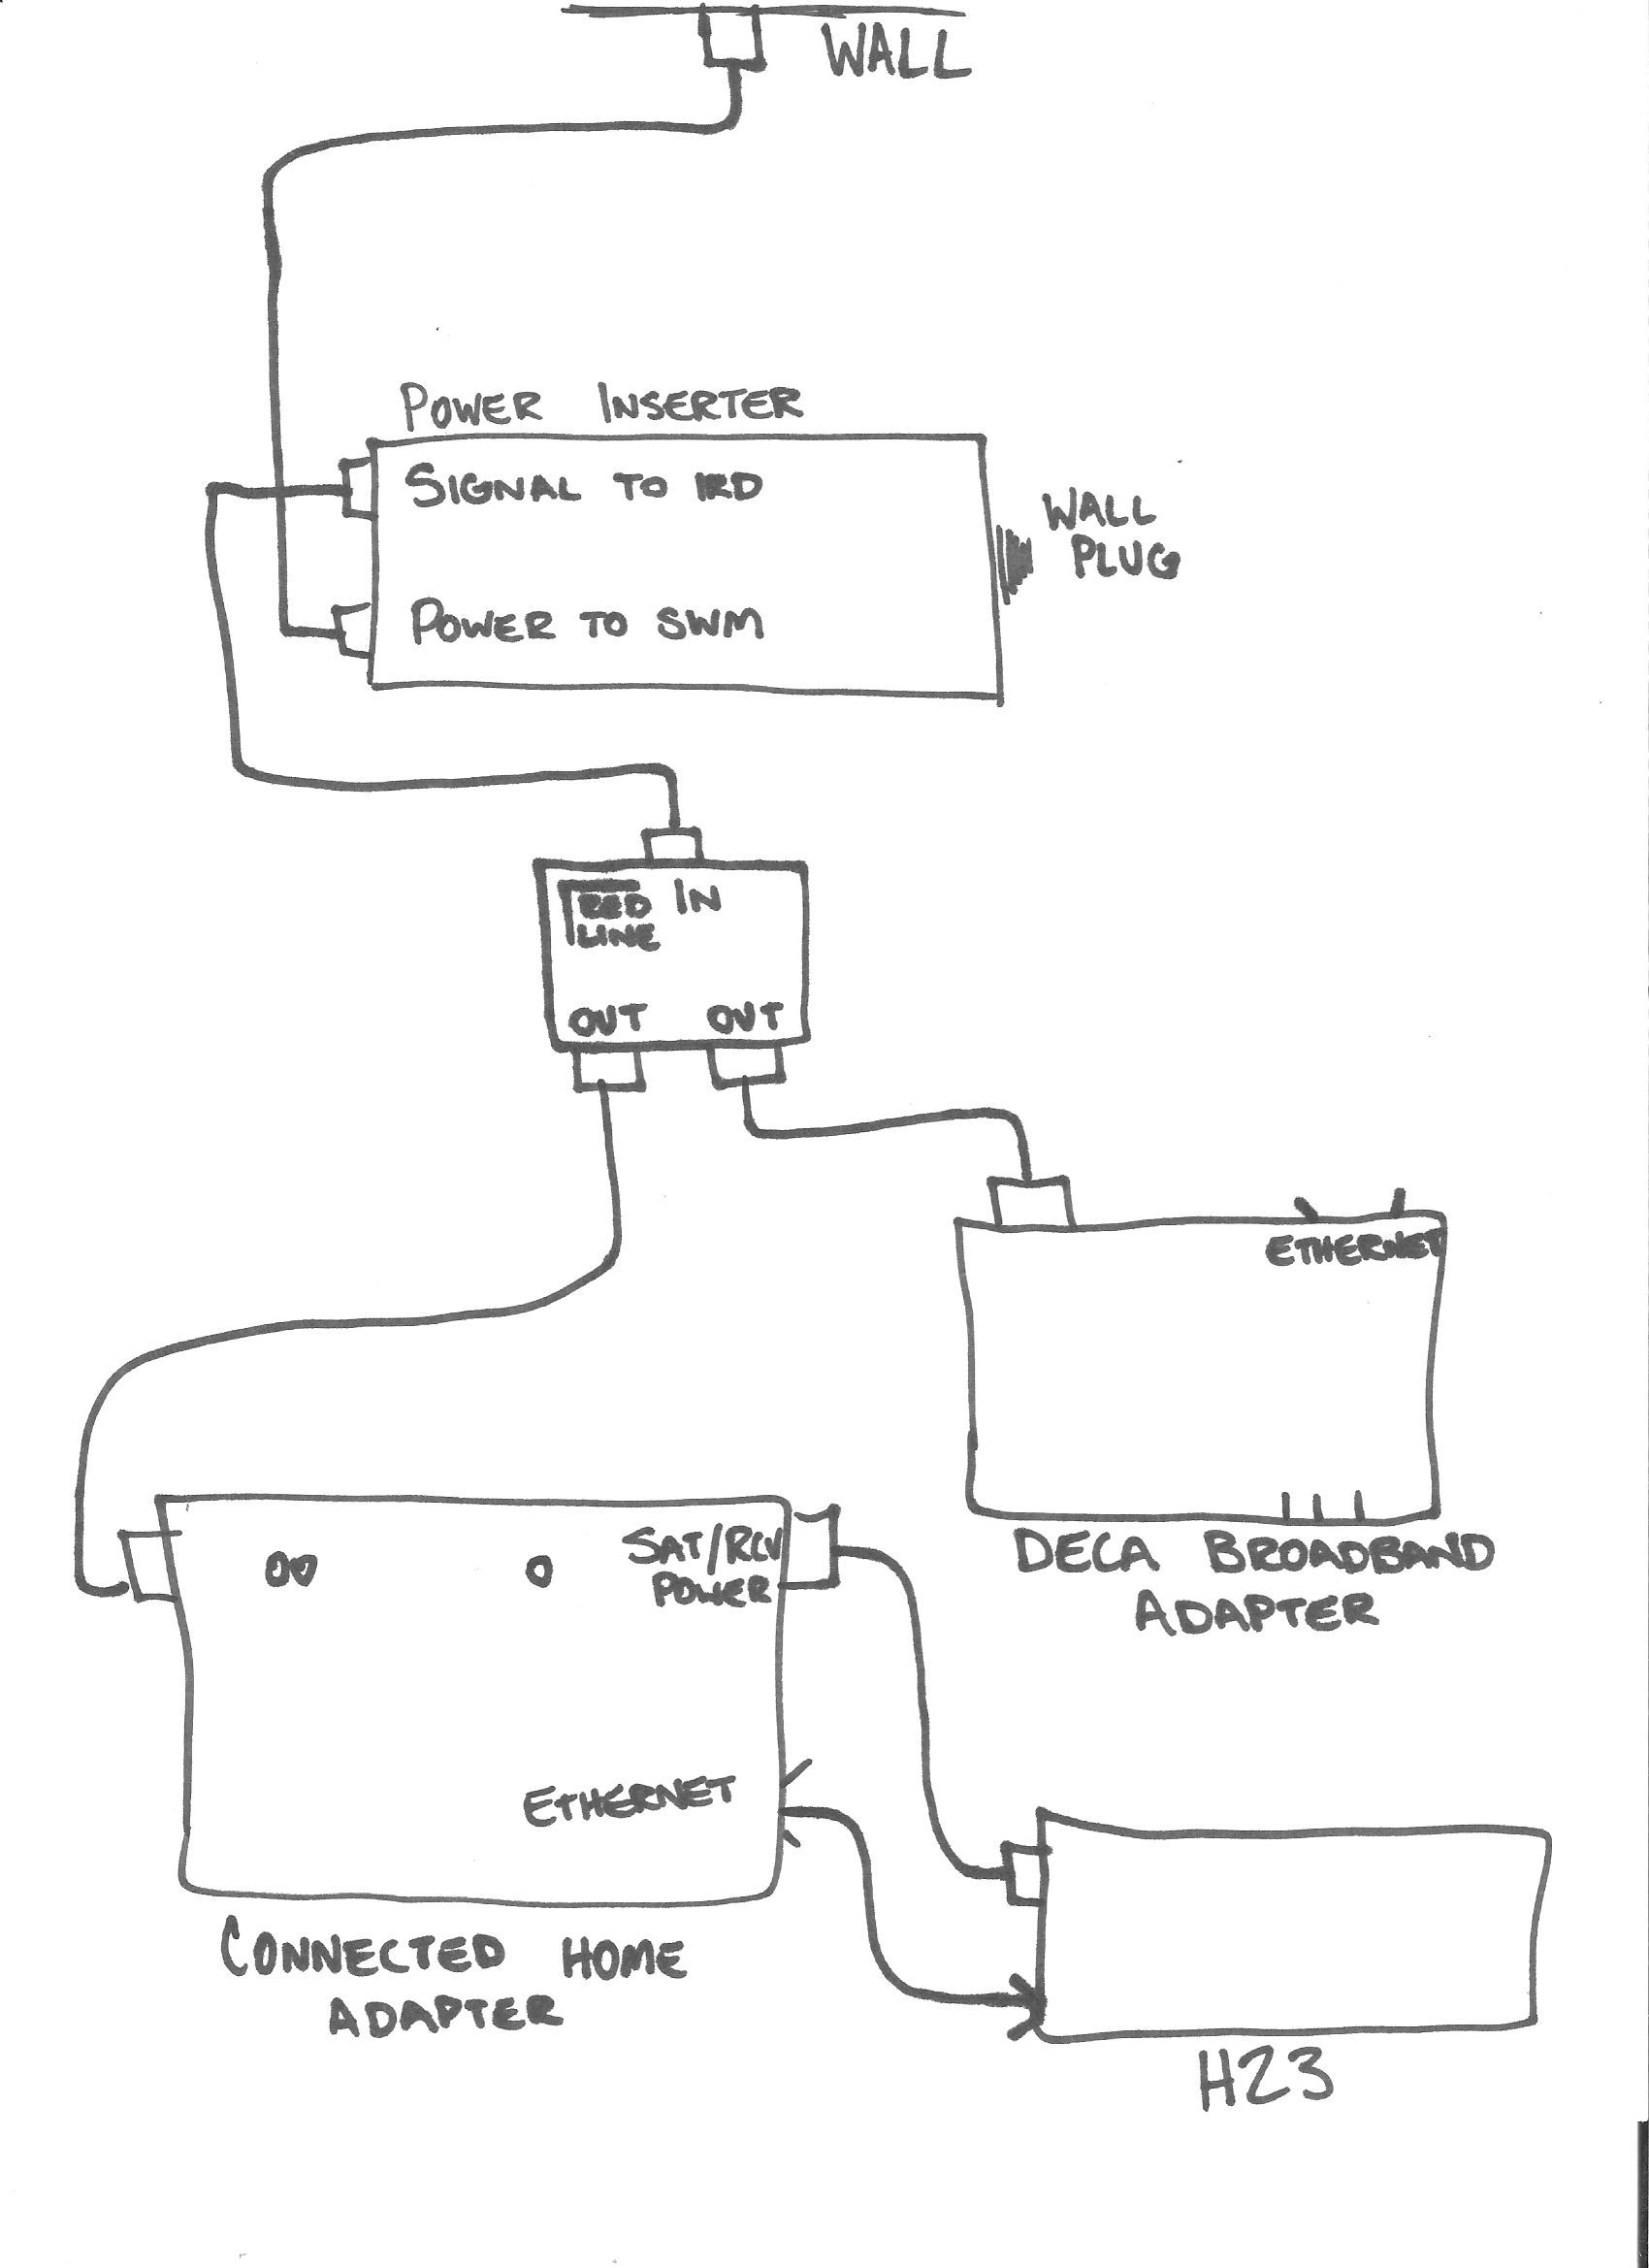 WALL
POWER INSERTER
SIGNAL TO IRD
WALL
PLUG
POWER TO SWM
RED IN
LINE
OUT OUT
ETHERNET
SAT/RCV
POWER
DECA BROADBAND
ADAPTER
ETHERNET
CONNECTED HOME
ADAPTER
H23